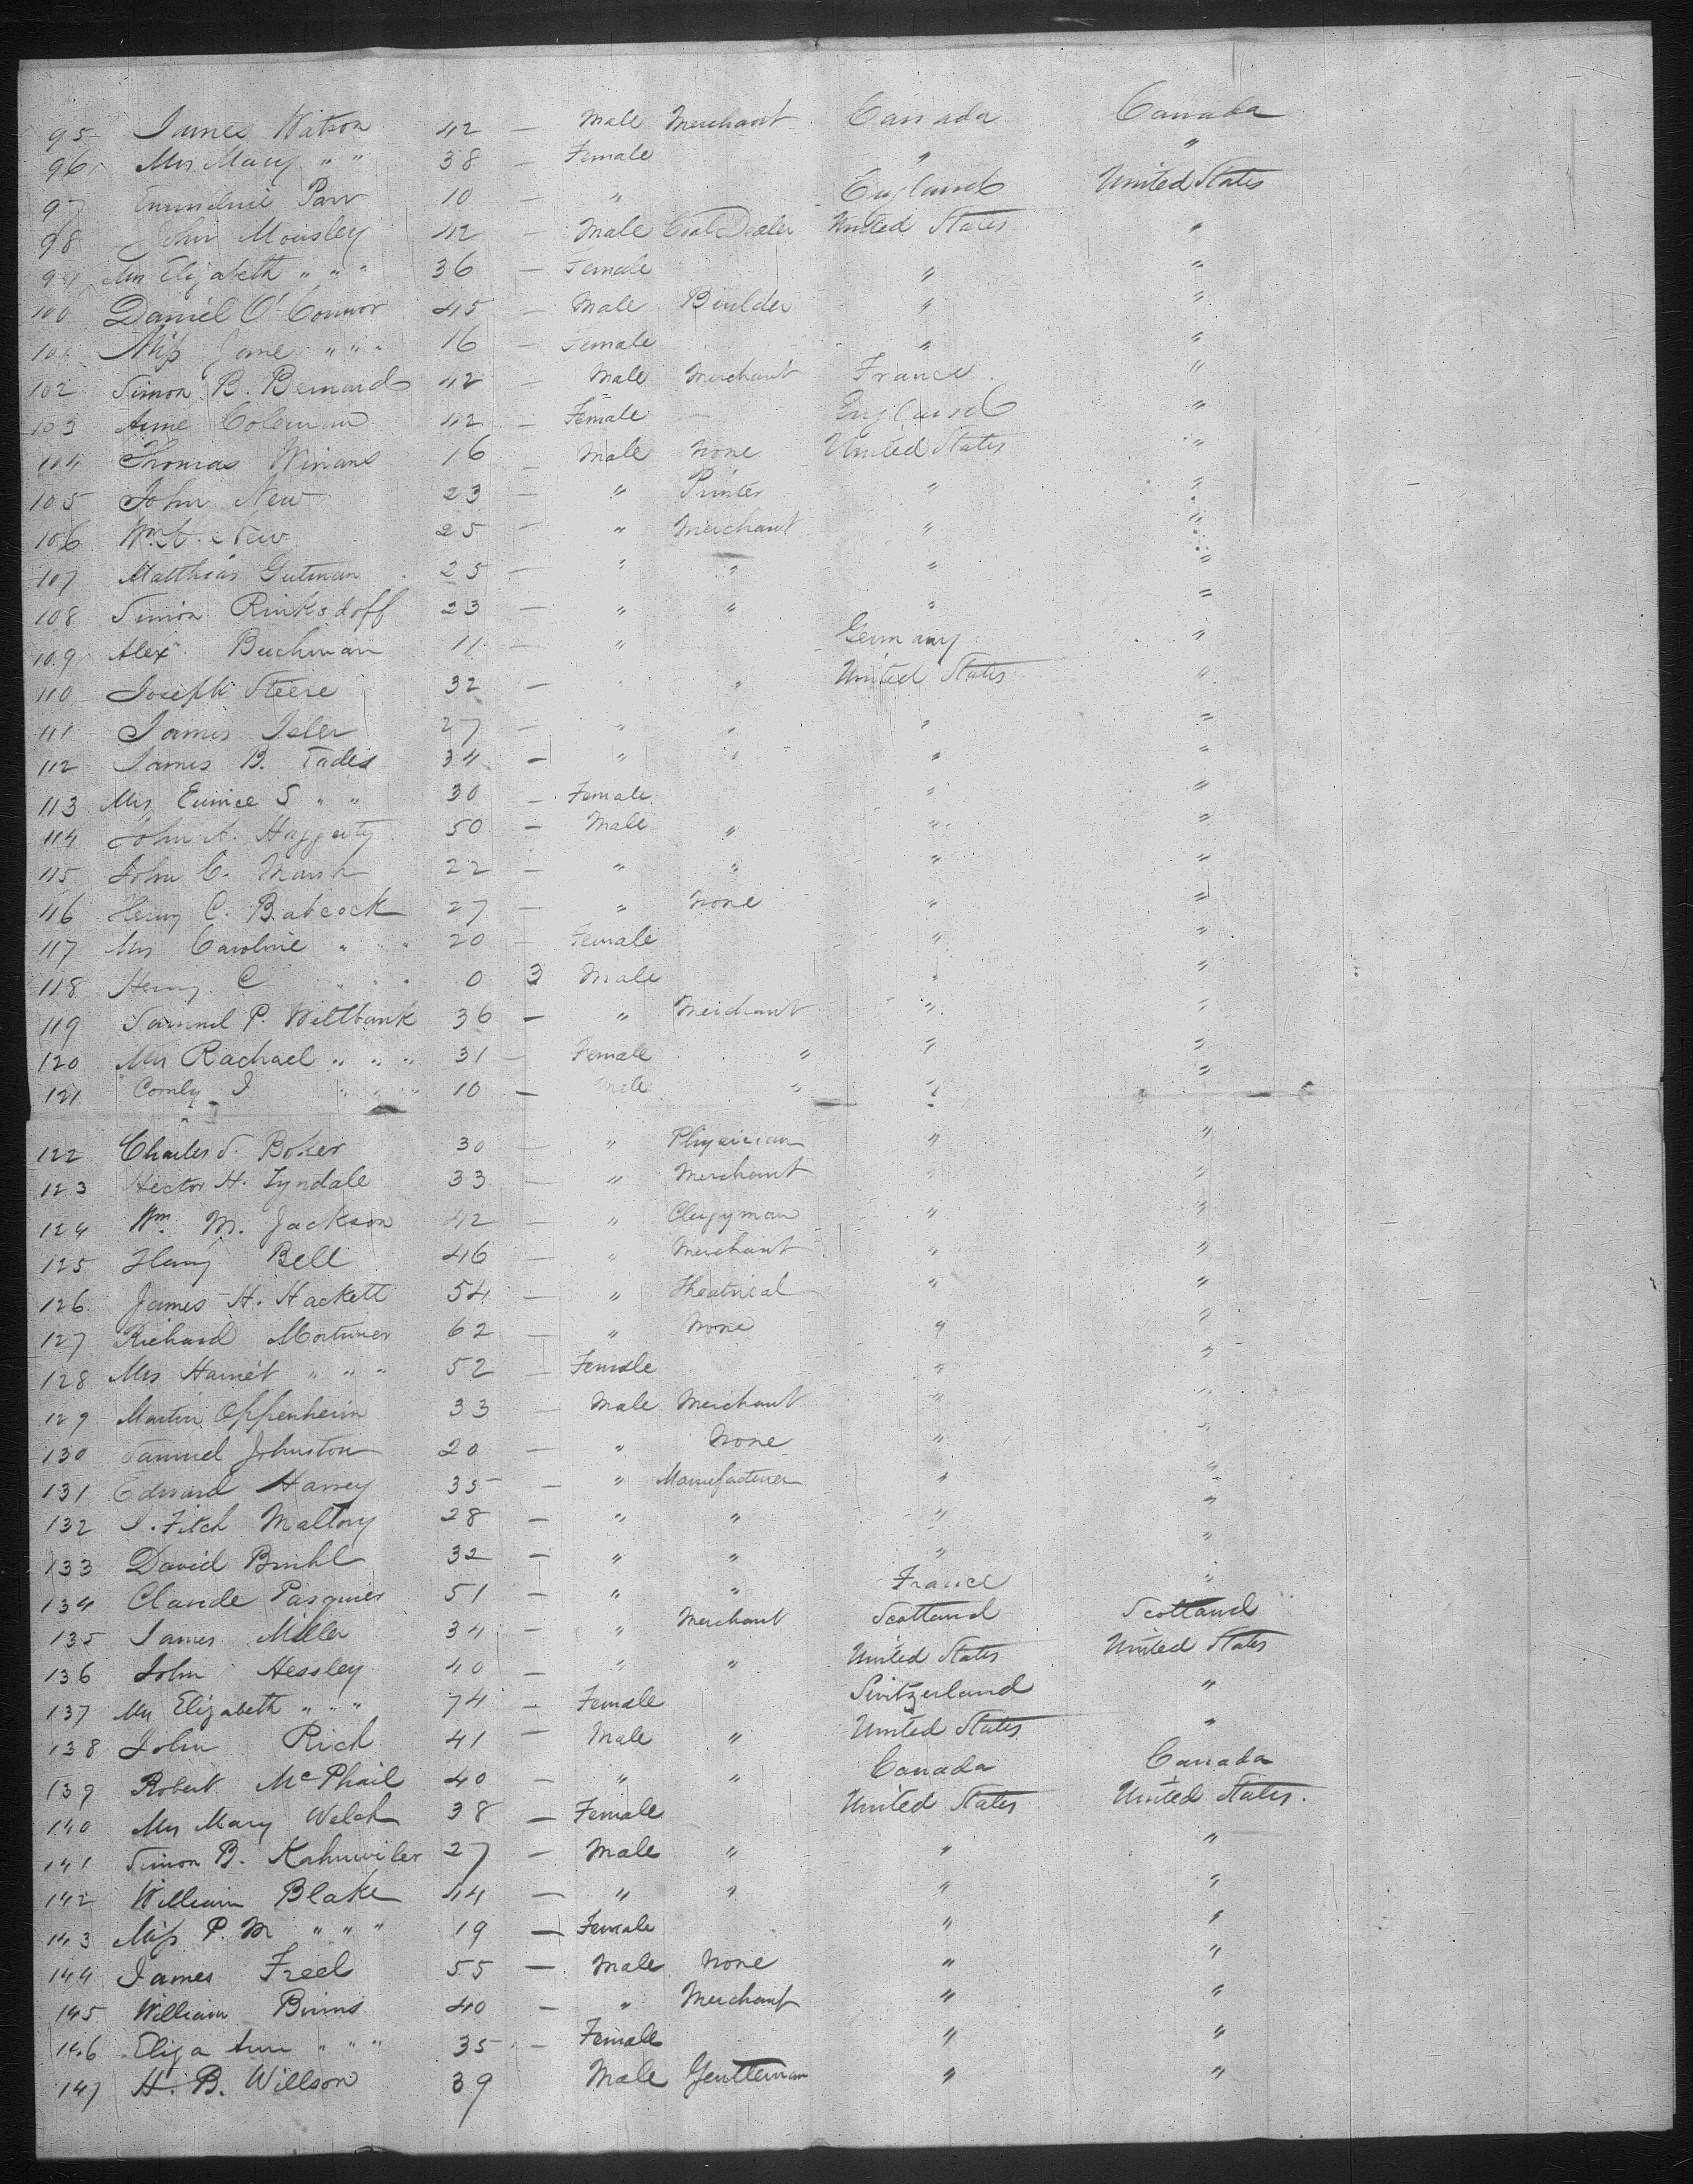 95 James Watson 42 — Male Merchant Canada Canada
96 Mrs Mary " " 38 — Female " "
97 Parr 10 — " England United States
98 John Mousley 42 — Male Coal Dealer United States "
99 Mrs Elizabeth " " " 36 — Female " "
100 Daniel O'Connor 45 — Male Builder " "
101 Miss Jane " " " 16 — Female " "
102 Simon B. Bernard 42 — Male Merchant France "
103 Anne Coleman 42 — Female — England "
104 Thomas Winans 16 — Male None United States "
105 John New 23 — " Printer " "
106 New 25 — " Merchant " "
107 Matthias Gutman 25 — " " " "
108 Simon Rinksdoff 23 — " " " "
109 Alex. Buchman 11 — " Germany "
110 Joseph Steere 32 — " " United States "
111 James Isler 27 — " " " "
112 James B. 34 — " " " "
113 Mrs Eunice S " " 30 — Female " "
114 John A. Haggerty 50 — Male " " "
115 John C. Marsh 22 — " " " "
116 Henry C. Babcock 27 — " None " "
117 Mrs Caroline " " " 20 — Female " "
118 Henry C " " " 0 3 Male " "
119 Samuel P. Wiltbank 36 — " Merchant " "
120 Mrs Rachael " " " 31 — Female " " "
121 Comly J " " " 10 — Male " " "
122 Charles S. Boker 30 — " Physician " "
123 Hector H. Tyndale 33 — " Merchant " "
124 Wm. M. Jackson 42 — " Clergyman " "
125 Henry Bell 46 — " Merchant " "
126 James H. Hackett 54 — " Theatrical " "
127 Richard Mortimer 62 — " None " "
128 Mrs Harriet " " " 52 — Female " "
129 Martin Oppenheim 33 — Male Merchant " "
130 Samuel Johnston 20 — " None " "
131 Edward Harvey 35 — " Manufacturer " "
132 J. Fitch Mallory 28 — " " " "
133 David Bruhl 32 — " " " "
134 Claude Pasquier 51 — " " France "
135 James Miller 34 — " Merchant Scotland Scotland
136 John Hessley 40 — " " United States United States
137 Mrs Elizabeth " " " 74 — Female Switzerland "
138 John Rich 41 — Male " United States "
139 Robert McPhail 40 — " " Canada Canada
140 Mrs Mary Welch 38 — Female United States United States.
141 Simon B. Kahnwiler 27 — Male " " "
142 William Blake 44 — " " " "
143 Miss P. M " " " 19 — Female " "
144 James Freel 55 — Male None " "
145 William Binns 40 — " Merchant " "
146 Eliza Ann " " " 35 — Female " "
147 H. B. Willson 39 Male Gentleman " "